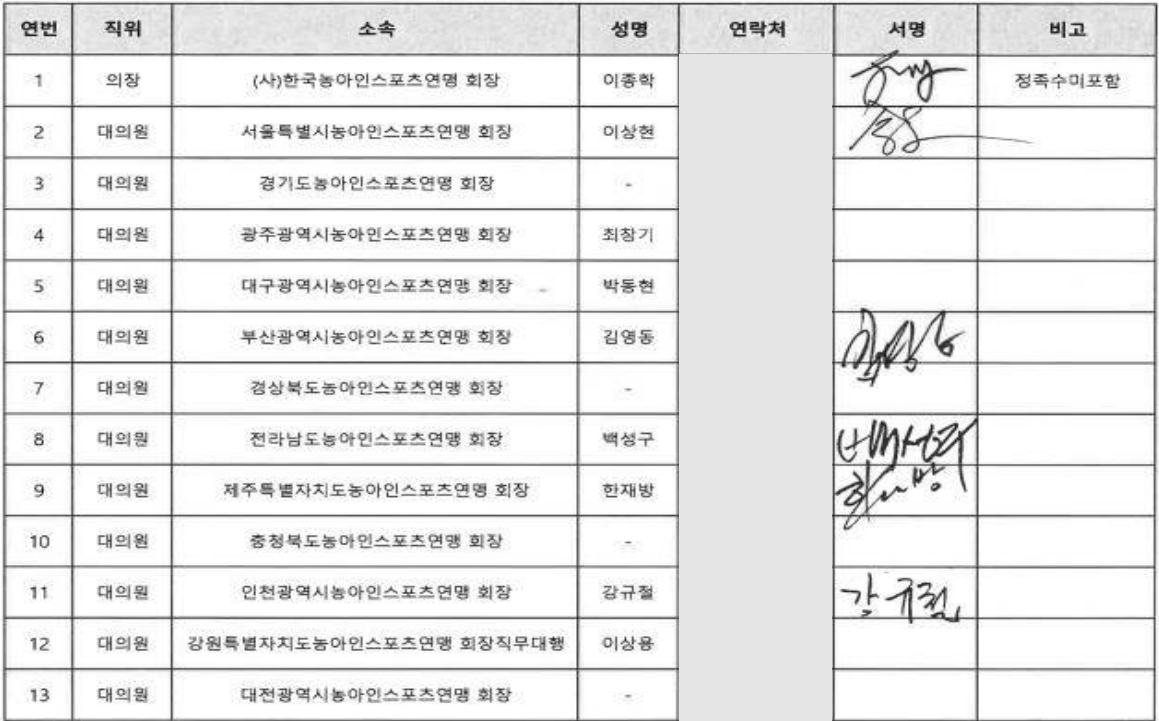 연번 직위 소속 성명 연락처 서명 비고
1 의장 (사)한국농아인스포츠연맹 회장 이종학 정족수미포함
2 대의원 서울특별시농아인스포츠연맹 회장 이상현
3 대의원 경기도농아인스포츠연맹 회장 -
4 대의원 광주광역시농아인스포츠연맹 회장 최창기
5 대의원 대구광역시농아인스포츠연맹 회장 박동현
6 대의원 부산광역시농아인스포츠연맹 회장 김영동
7 대의원 경상북도농아인스포츠연맹 회장 -
8 대의원 전라남도농아인스포츠연맹 회장 백성구 백성구
9 대의원 제주특별자치도농아인스포츠연맹 회장 한재방
10 대의원 충청북도농아인스포츠연맹 회장 -
11 대의원 인천광역시농아인스포츠연맹 회장 강규철 강규철
12 대의원 강원특별자치도농아인스포츠연맹 회장직무대행 이상용
13 대의원 대전광역시농아인스포츠연맹 회장 -